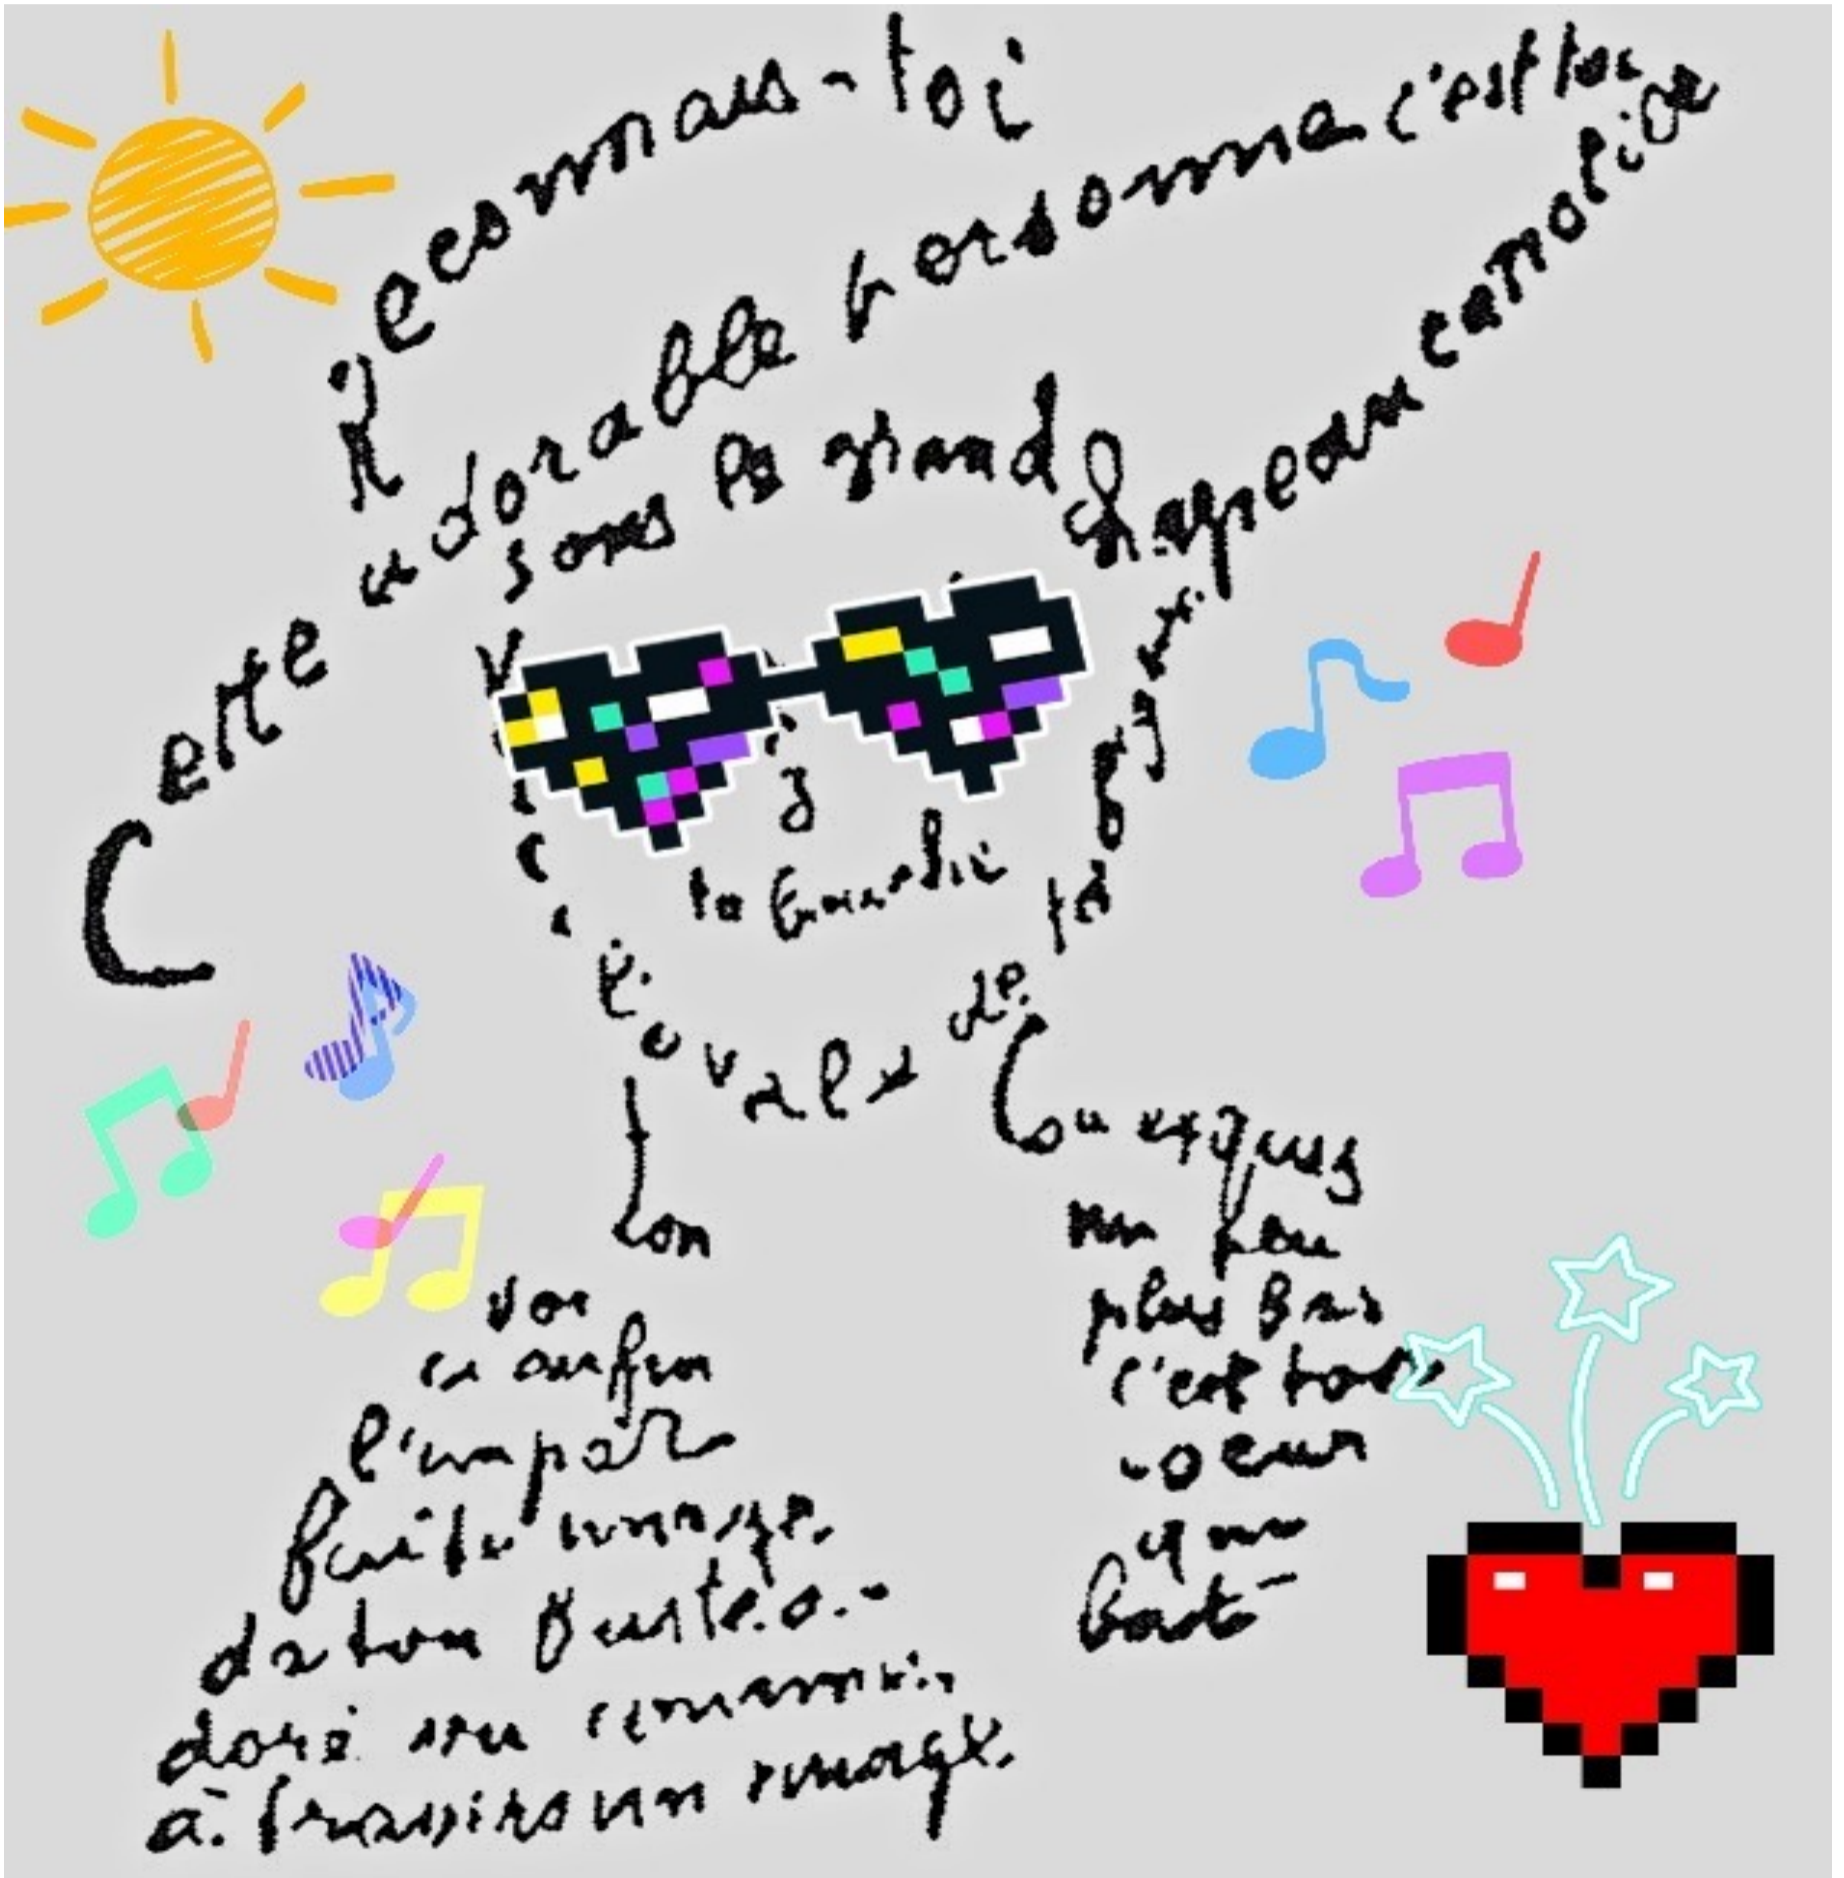 Reconnais-toi
Cette adorable personne c'est toi
sous le grand chapeau canotier
la bouche
Voici l'ovale de ta figure
Ton
Cou exquis
Voi
ci enfin
l'impar
faite image
de ton buste a
doré vu comme
à travers un nuage
un peu
plus bas
c'est ton
coeur
qui
bat